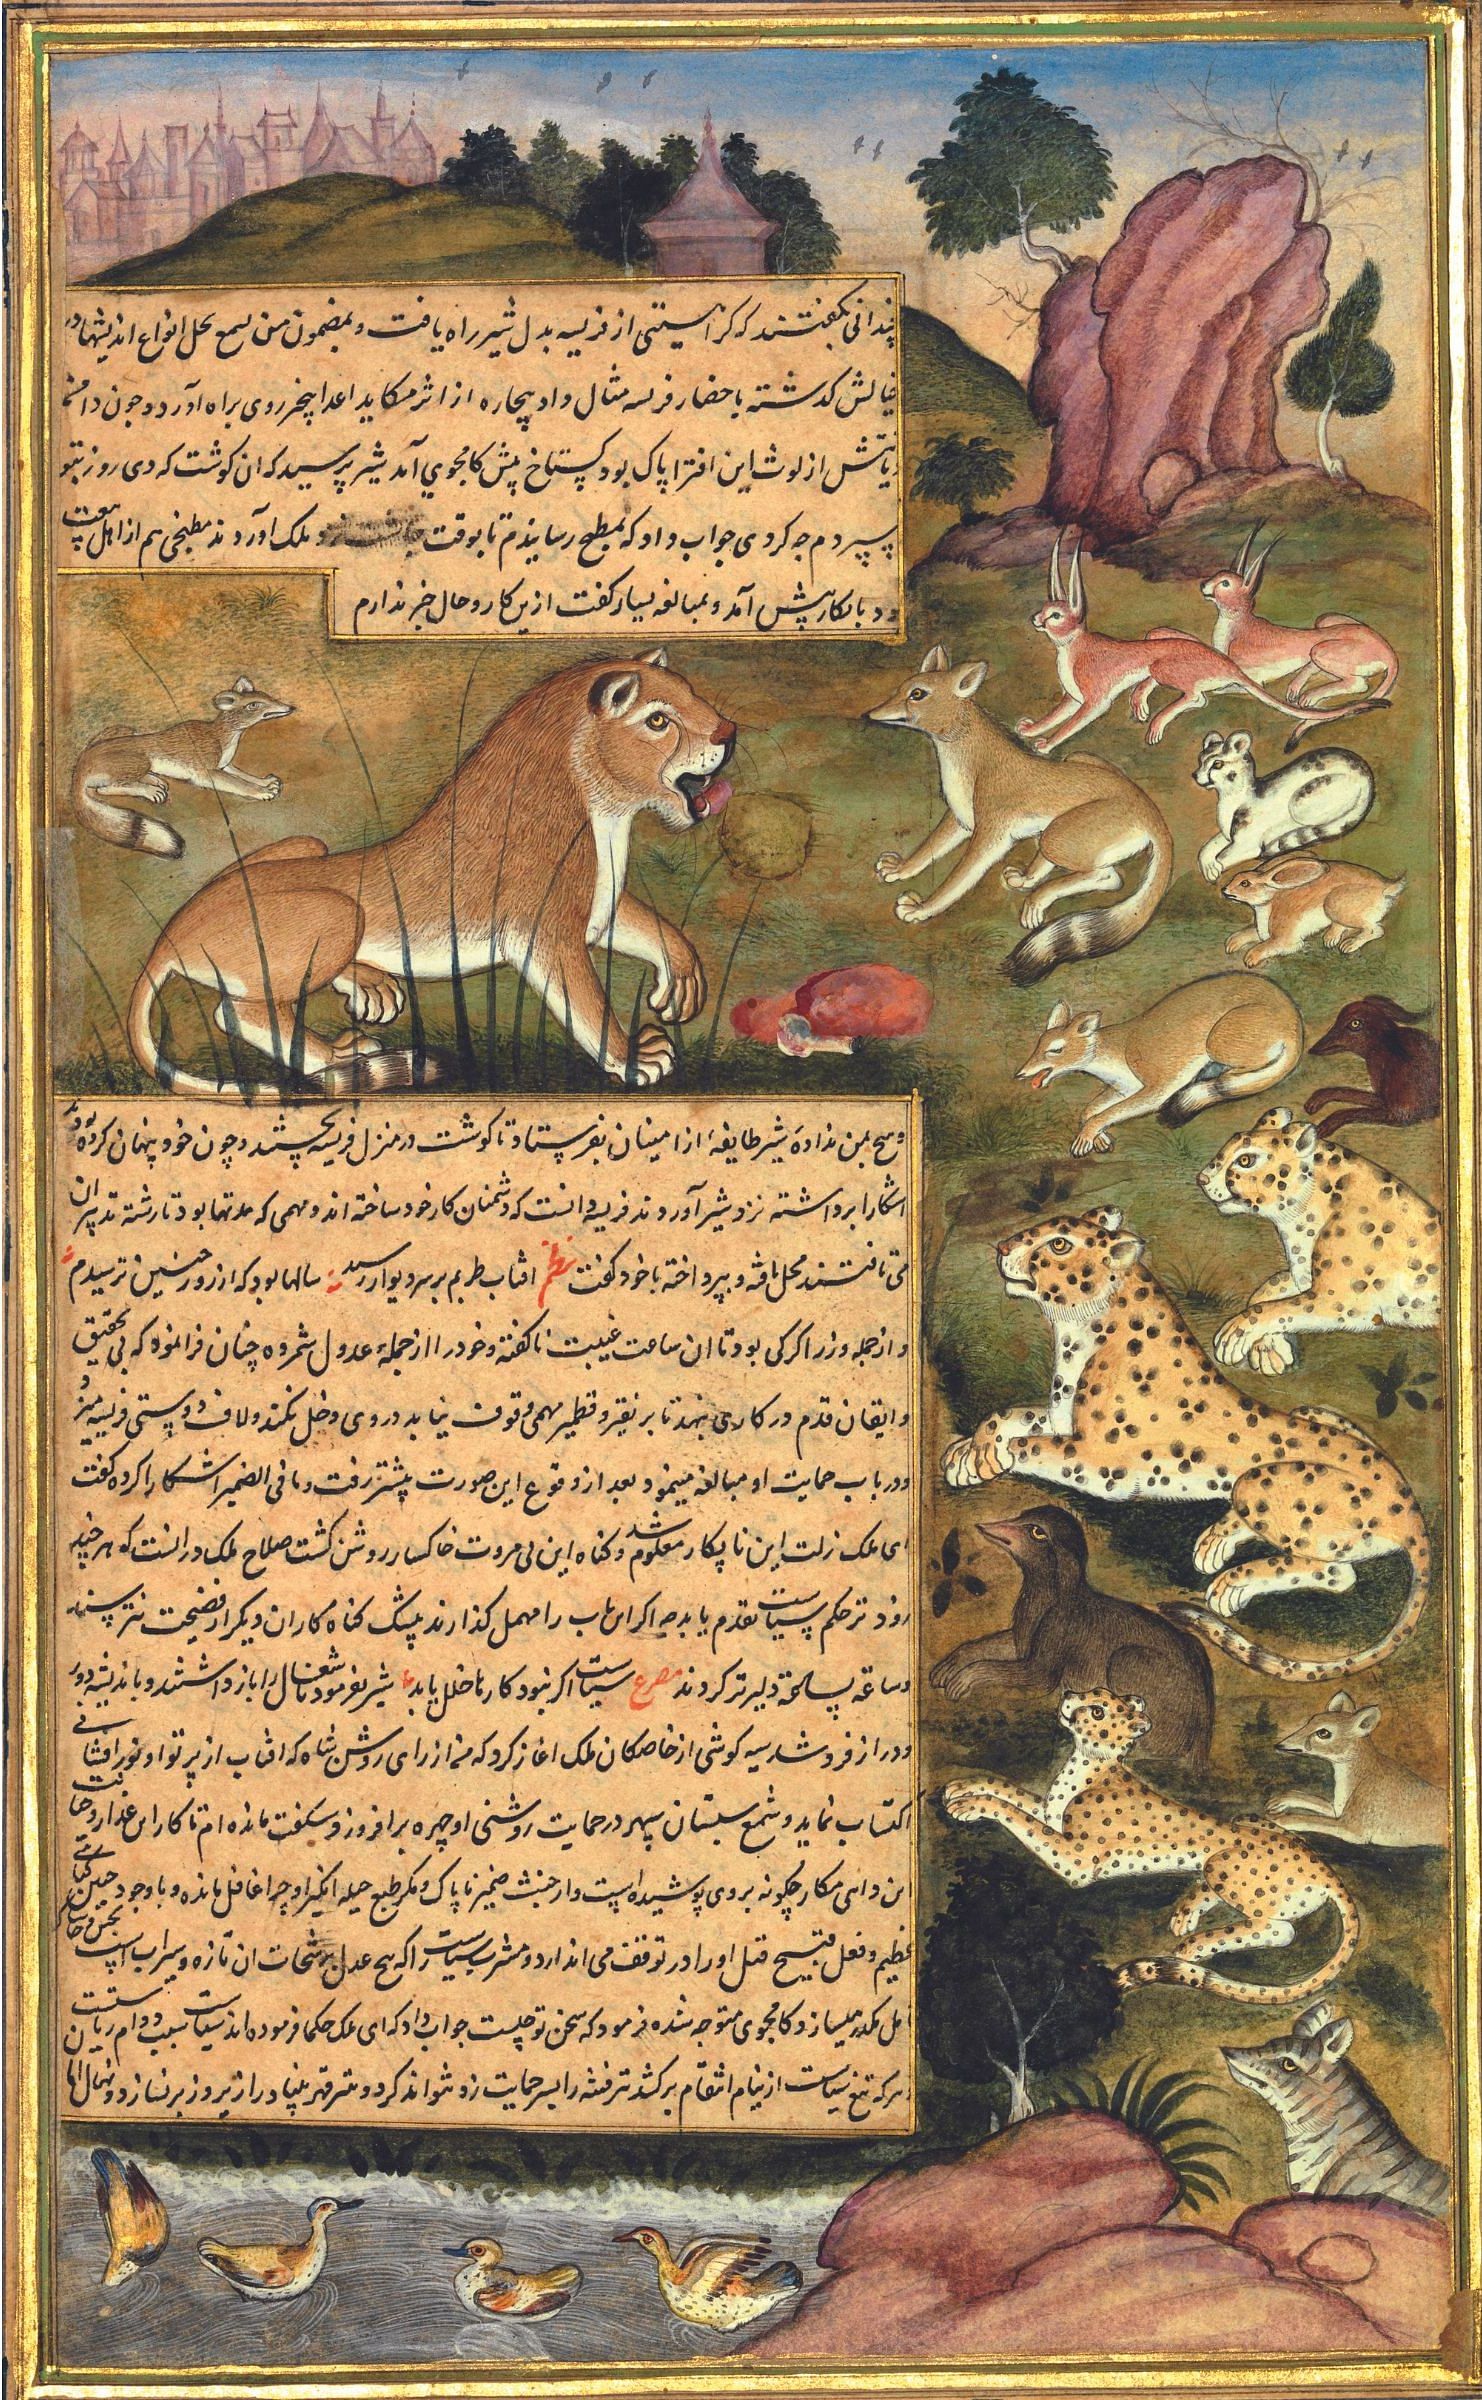 چندانی بگفتند که کراهیتی از فریسه بدل شیر راه یافت و بمضمون من یسمع یخل انواع اندیشها در
خیالش گذشته باحضار فریسه مثال داد بیچاره از اثر مکاید اعدا بیخبر روی براه آورد و چون دامن
دیانتش از لوث این افترا پاک بود گستاخ پیش کامجوی آمد شیر پرسید که ان کوشت که دی روز بتو
سپردم چه کردی جواب داد که بمطبخ رسانیدم تا بوقت نزد ملک اورند مطبخی هم از اهل بیعت
بود بانکار پیش آمد و بمبالغه بسیار کفت ازین کار و حال خبر ندارم
و هیچ بمن نداده شیر طایفهٔ از امینان بفرستاد تا کوشت در منزل فریسه بجستند و چون خود پنهان کرده بودند
اشکارا برداشته نزد شیر آوردند فریسه دانست که دشمنان کار خود ساخته اند و مهمی که مدتها بود تا رشته تدبیر ان
می تافتند محل یافته و بپرداخته با خود کفت نظم افتاب طربم بر سر دیوار رسید سالها بود که از روز چنین ترسیدم
و از جمله وزرا گرگی بود تا ان ساعت غیبت ناکفته و خود را از جملهٔ عدول شمرده چنان فرا نمود که بی تحقیق
و ایقان قدم در کاری ننهد تا بر نقیر و قطمیر مهمی وقوف نیابد در وی دخل نکند و لاف دوستی فریسه میزد
و در باب حمایت او مبالغه مینمود بعد از وقوع این صورت پیشتر رفت و ما فی الضمیر اشکارا کرده کفت
ای ملک زلت این نابکار معلوم شد و کناه این بی مروت خاکسار روشن کشت صلاح ملک در انست که هر چند
زودتر حکم سیاست تقدیم یابد چه اکر این باب را مهمل کذارند بیشک کناه کاران دیگر از فضیحت نترسند
و ساعة بساعة دلیرتر کردند مصرع سیاست اکر نبود کارها خلل یابد شیر بفرمود تا شغال را باز داشتند و باندیشه دور
و دراز فرو شد سیه کوشی از خاصکان ملک اغاز کرد که من از رای روشن شاه که افتاب از پرتو او نور افشانی
اکتساب نماید و شمع شبستان سپهر در حمایت روشنی او چهره برافروزد شکفت مانده ام تا کار این غدار و خیانت
این داهی مکار چکونه بر وی پوشیده است و از خبث ضمیر ناپاک و مکر طبع حیله انکیز او چرا غافل مانده و با وجود چنین گناهی
عظیم و فعل قبیح قتل او را در توقف می اندازد و مشرب سیاست را که هیچ عدل برشحات ان تازه و سیراب است
مکدر میسازد کامجوی متوجه شده فرمود که سخن تو چیست جواب داد که ای ملک حکما فرموده اند سیاست سبب دوام ریاست
هر که تیغ سیاست از نیام انتقام بر نکشد سر فتنه را بسر حمایت زد نتواند کرد و نتر قهر بنیاد